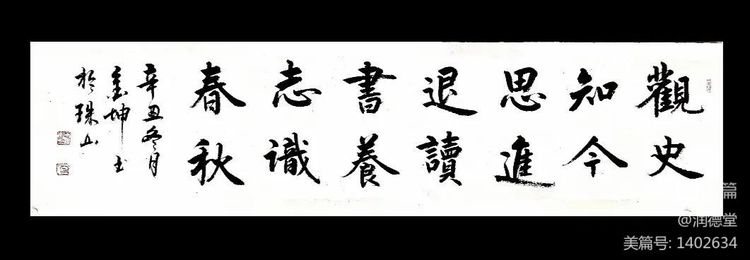 觀史
知今
思進
退讀
書養
志識
春秋
辛丑冬月
金坤书
於珠山
篇
@润德堂
美篇号: 1402634